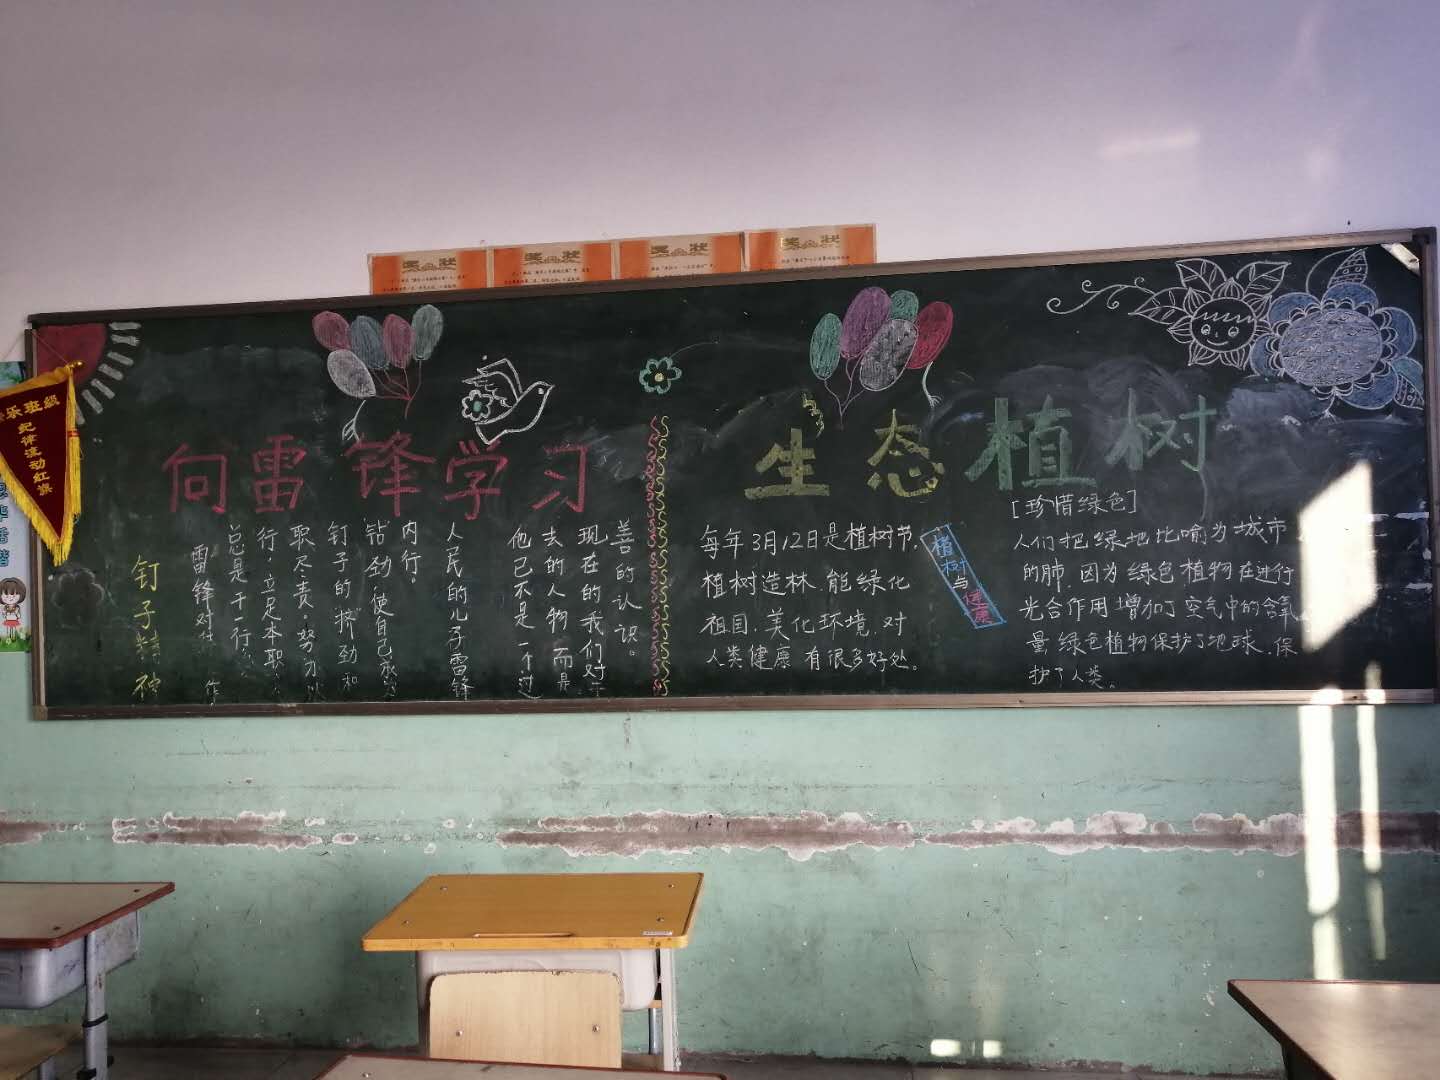 奖状
奖状
奖状
奖状
班级
纪律流动红旗
向雷锋学习
钉子精神
雷锋对
总是干一行
行,立足本职
职尽责。努力
钉子的精神和
钻劲,使自己成
内行。
人民的儿子雷锋
他已不是一个过
去的人物,而是
现在的我们对
善的认识。
生态植树
每年3月12日是植树节,
植树造林,能绿化
祖国,美化环境,对
人类健康有很多好处。
植树与健康
[珍惜绿色]
人们把绿地比喻为城市
的肺,因为绿色植物在进行
光合作用增加了空气中的含氧
量绿色植物保护了地球,保
护了人类。